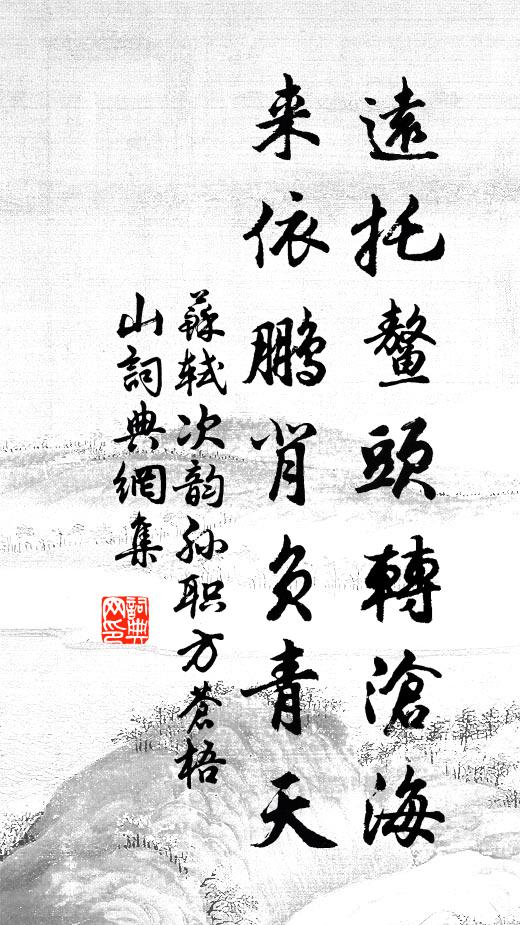 遠托鰲頭轉滄海
来依鵬背負青天
蘇軾次韵孙职方蒼梧
山詞典網集
詞典
网印